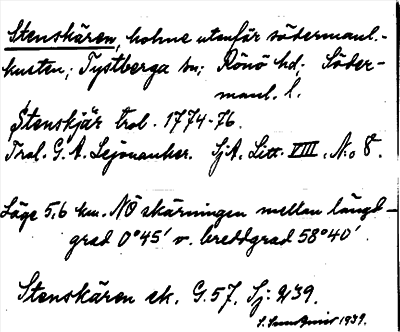 Stenskären, holme utanför södermanl.-
kusten; Tystberga sn; Rönö hd; Söder-
manl. l.
Stenskjär trol. 1774-76.
Trol. G. A. Lejonanker. SjA. Litt. VIII. N:o 8.
Läge 5,6 km. NÖ skärningen mellan längd-
grad 0°45' v. breddgrad 58°40'.
Stenskären ek. G.57. Sj: 239.
1939.